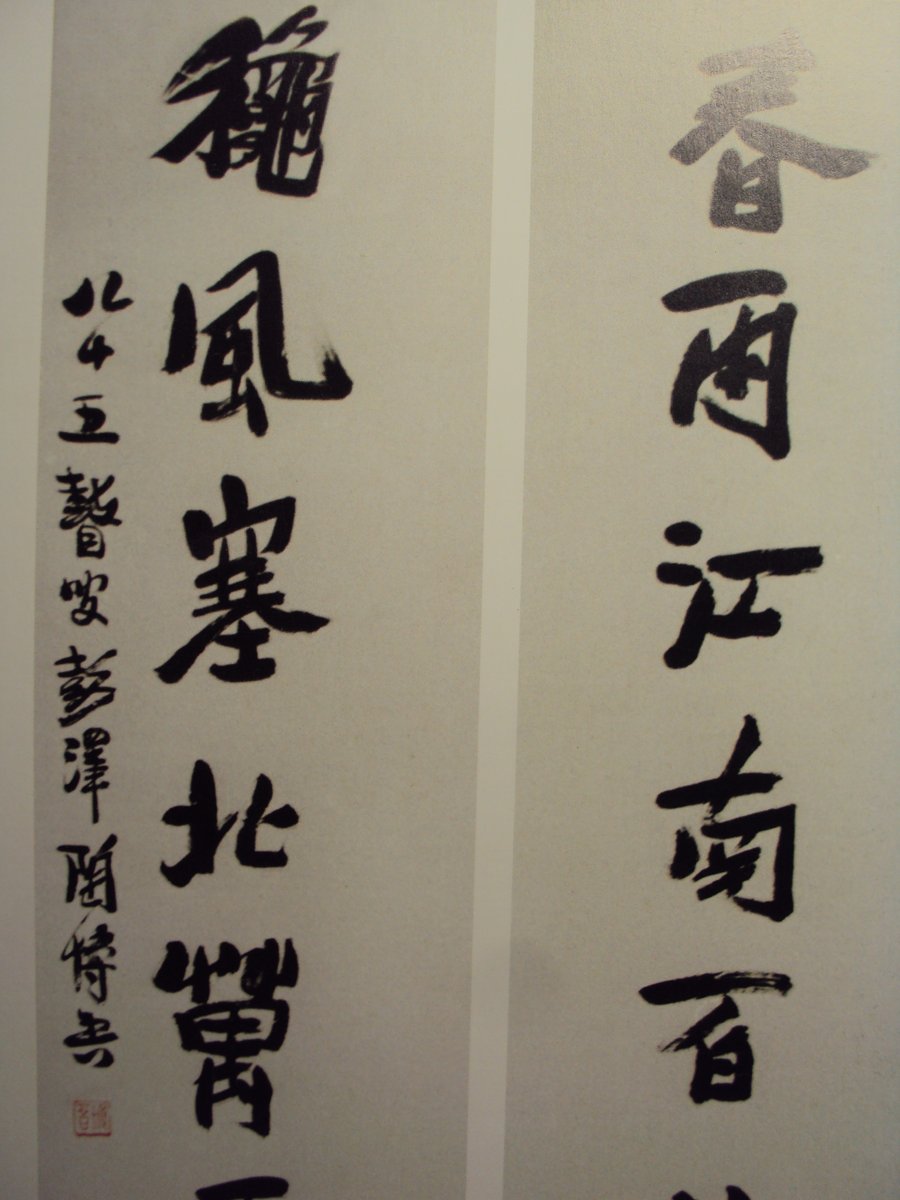 春雨江南百
龝風塞北萬
八十五瞽叟彭澤陶博吾